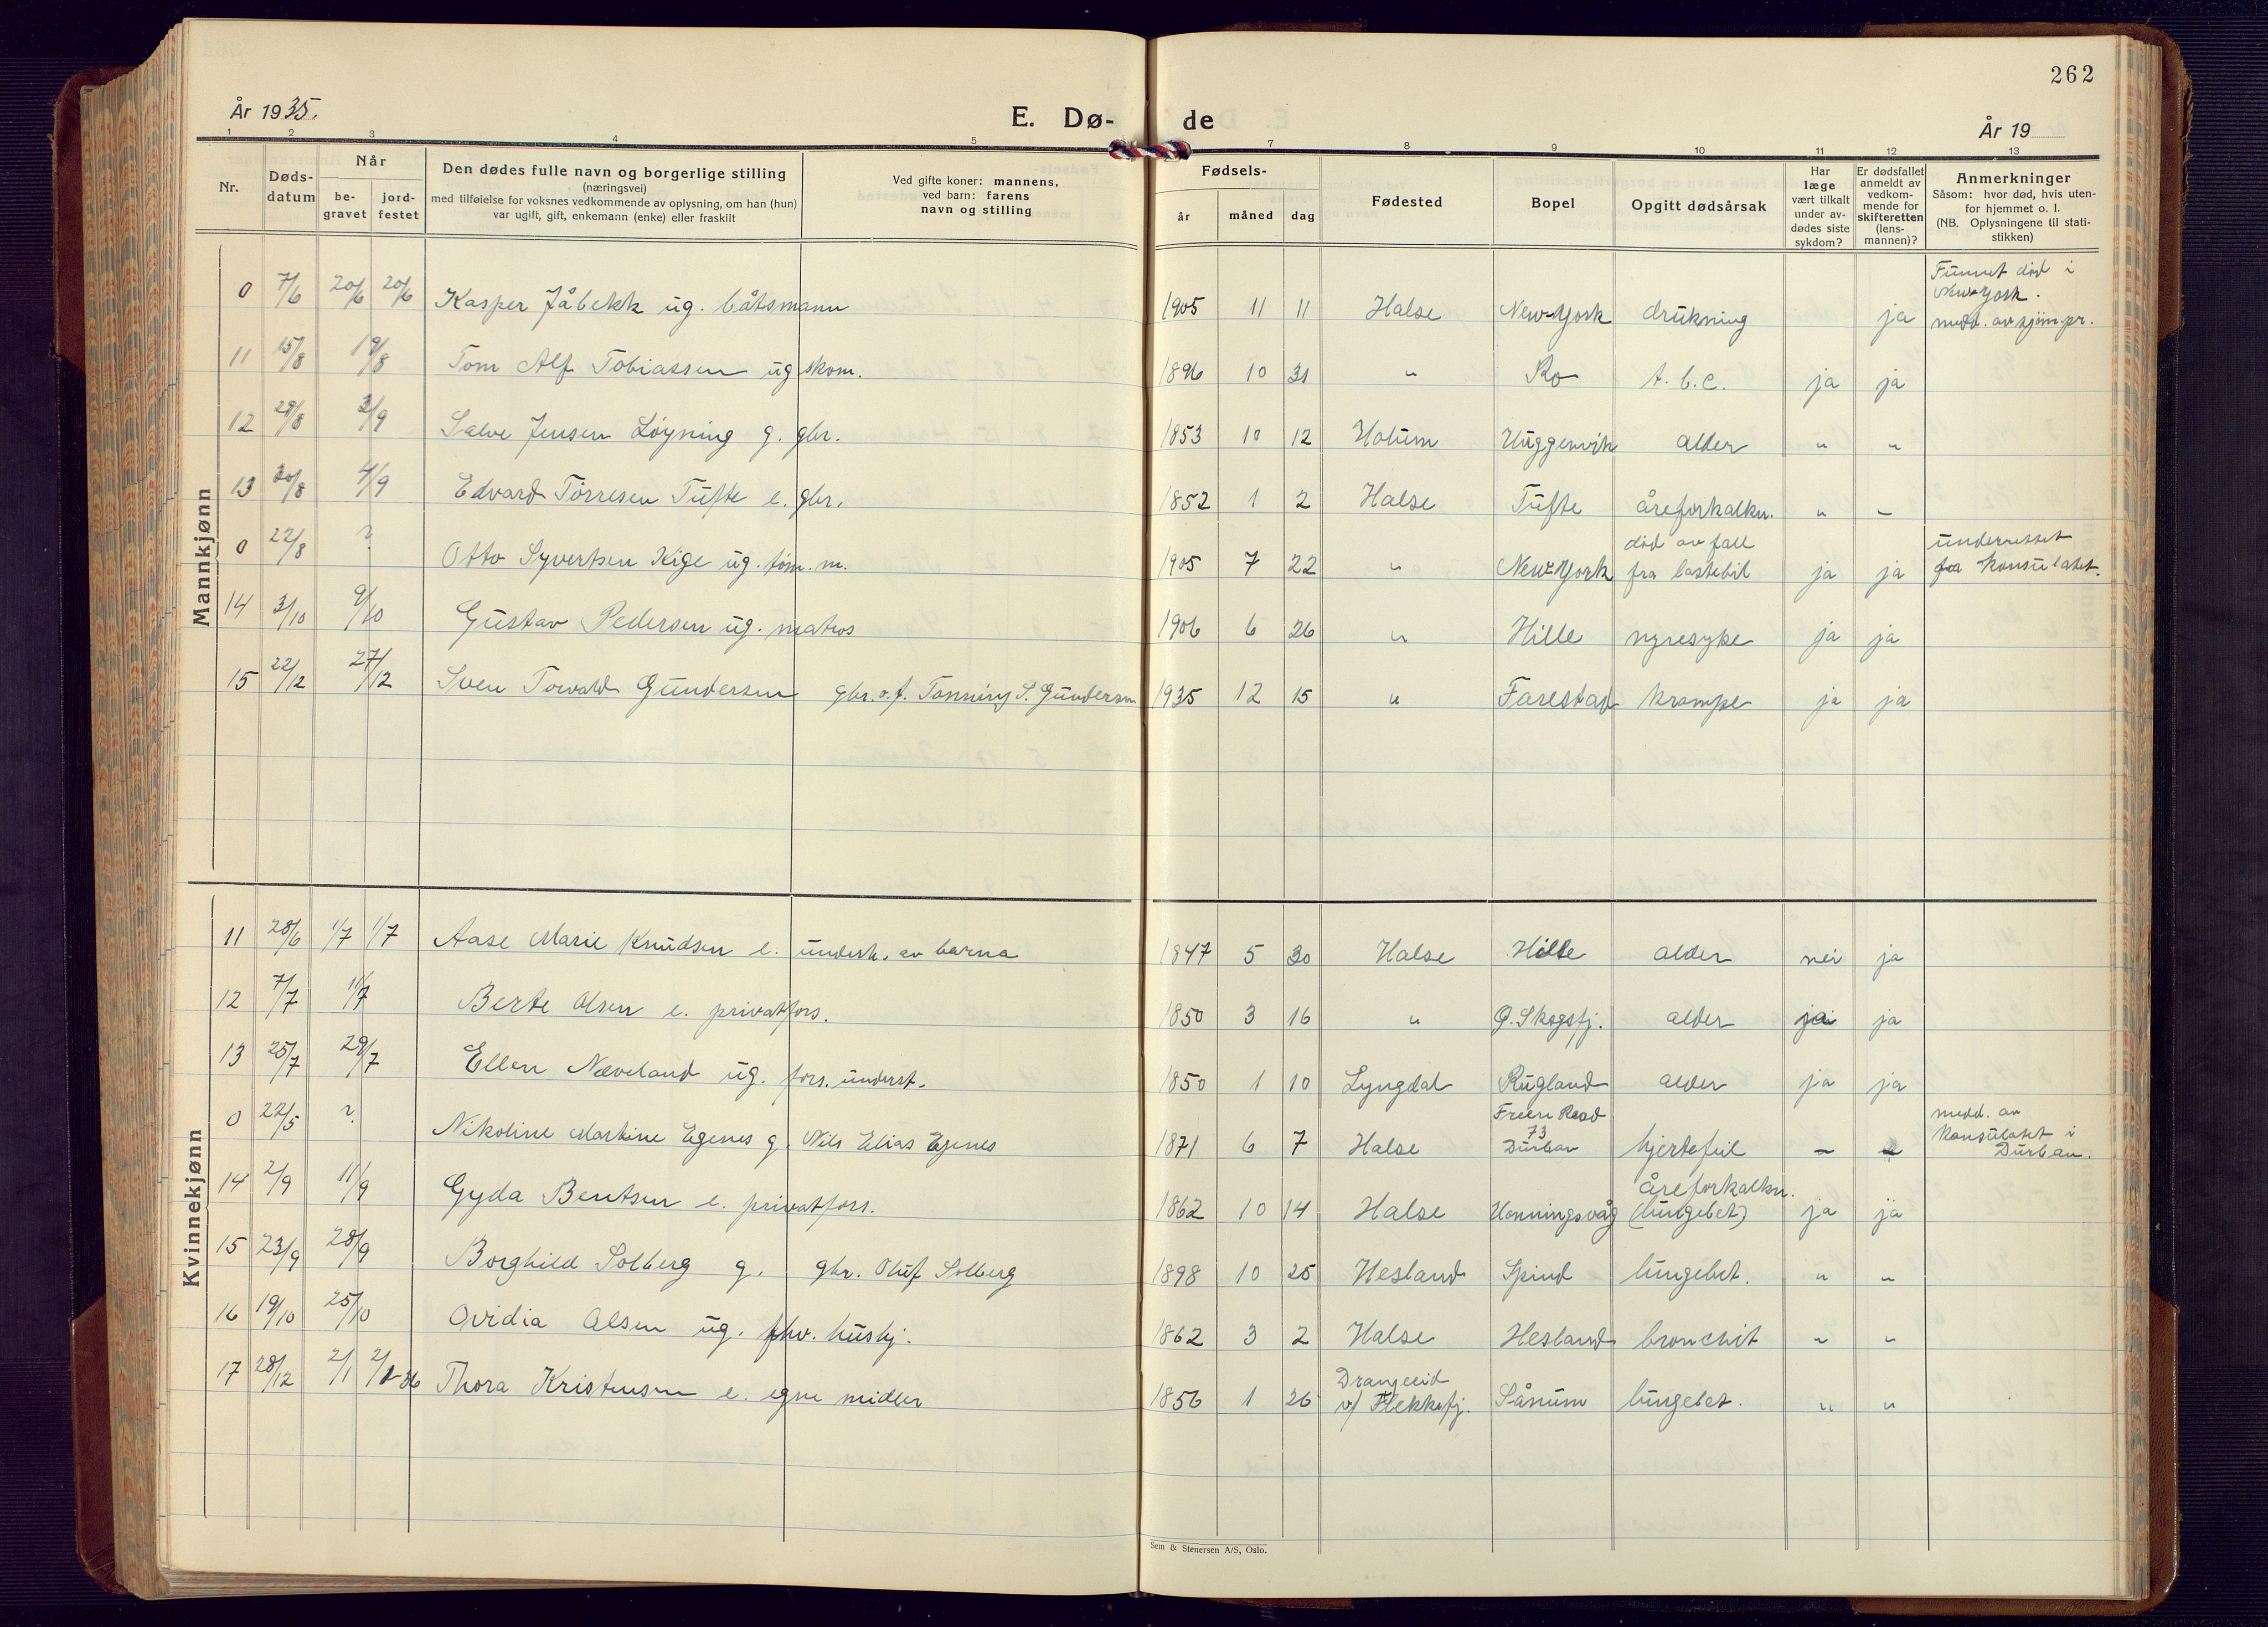 262
År 1935.
E. Dø- de
År 19
1 2 3 4 5 7 8 9 10 11 12 13
Nr.
Døds-
datum
Når
be-
gravet
jord-
festet
Den dødes fulle navn og borgerlige stilling
(næringsvei)
med tilføielse for voksnes vedkommende av oplysning, om han (hun)
var ugift, gift, enkemann (enke) eller fraskilt
Ved gifte koner: mannens,
ved barn: farens
navn og stilling
Fødsels-
år måned dag
Fødested
Bopel
Opgitt dødsårsak
Har
læge
vært tilkalt
under av-
dødes siste
sykdom?
Er dødsfallet
anmeldt av
vedkom-
mende for
skifteretten
(lens-
mannen)?
Anmerkninger
Såsom: hvor død, hvis uten-
for hjemmet o. l.
(NB. Oplysningene til stati-
stikken)
Mannkjønn
0 7/6 20/6 20/6 Kasper Jåbekk ug. båtsmann 1905 11 11 Halse New-York drukning ja Funnet død i
New York.
medd. av sjøm.pr.
11 15/8 19/8 Tom Alf Tobiassen ug skom. 1896 10 31 " Ro t.b.c. ja ja
12 29/8 3/9 Salve Jensen Løyning g. gbr. 1853 10 12 Holum Uggenvik alder " "
13 30/8 4/9 Edvard Tørresen Tufte e. gbr. 1852 1 2 Halse Tufte åreforkalkn. " "
0 22/8 ? Otto Syvertsen Kige ug. tøm.m. 1905 7 22 " New-York død av fall
fra lastebil ja ja underrettet
fra konsulatet.
14 3/10 9/10 Gustav Pedersen ug. matros 1906 6 26 " Hille nyresyke ja ja
15 22/12 27/12 Sven Torvald Gundersen gbr. o. f. Tønning S. Gundersen 1935 12 15 " Farestad krampe ja ja
Kvinnekjønn
11 28/6 1/7 1/7 Aase Marie Knudsen e. underh. av barna 1847 5 30 Halse Hille alder nei ja
12 7/7 11/7 Berte Olsen e. privatfors. 1850 3 16 " Ø. Skogsfj. alder ja ja
13 25/7 29/7 Ellen Næveland ug. fors. underst. 1850 1 10 Lyngdal Rugland alder ja ja
0 22/5 ? Nikoline Martine Egenes g. Nils Elias Egenes 1871 6 7 Halse Road
73
Durban hjertefeil - - medd. av
konsulatet i
Durban.
14 2/9 11/9 Gyda Bentsen e. privatfors. 1862 10 14 Halse Honningsvåg åreforkalkn.
(lungebet) ja ja
15 23/9 28/9 Borghild Solberg g. gbr. Oluf Solberg 1898 10 25 Hesland Spind lungebet. " "
16 19/10 25/10 Ovidia Olsen ug. fhv. hushj. 1862 3 2 Halse Hesland bronchit " "
17 28/12 2/1 2/1-36 Thora Kristensen e. egne midler 1856 1 26 Drangeeid
v/ Flekkefj. Sånum lungebet. " "
Sem & Stenersen A/S, Oslo.